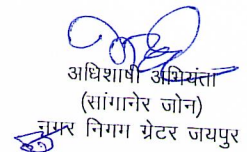 अधिशाषी अभियंता
(सांगानेर जोन)
नगर निगम ग्रेटर जयपुर